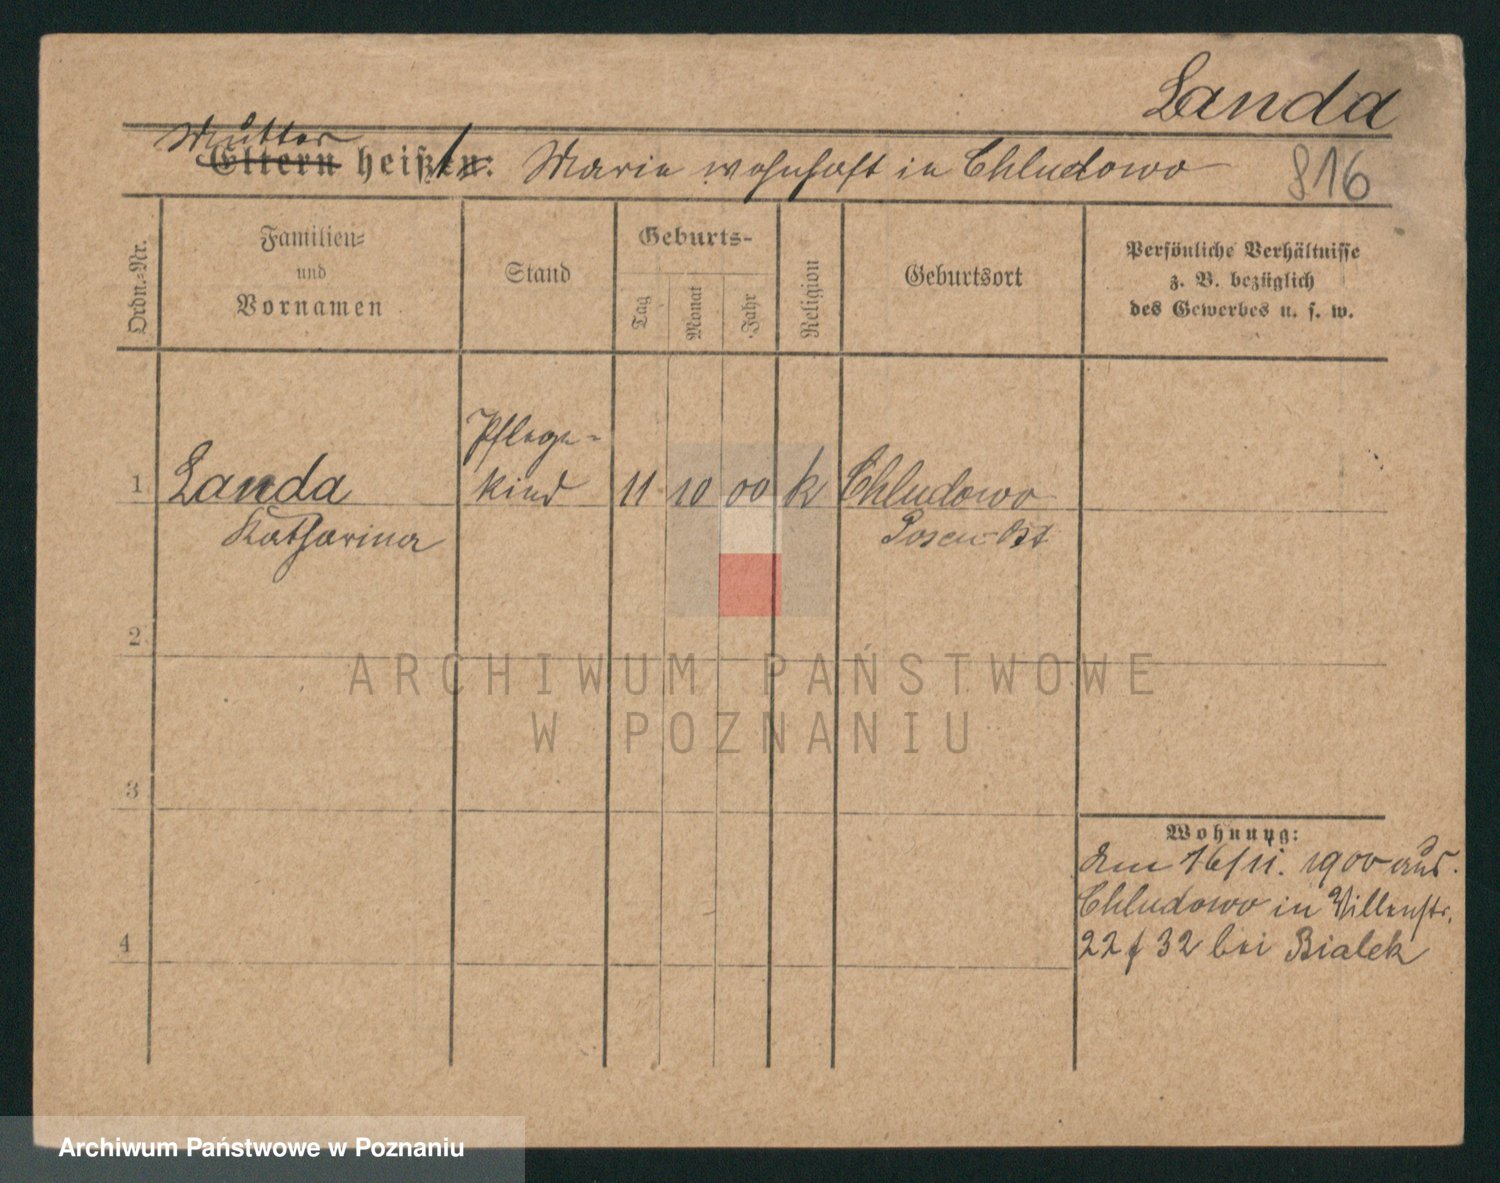 Landa
Mutter
Eltern heißen: Marie wohnhaft in Chludowo
816
Ordn.=Nr.
Familien=
und
Vornamen
Stand
Geburts-
Tag
Monat
Jahr
Religion
Geburtsort
Persönliche Verhältnisse
z. B. bezüglich
des Gewerbes u. s. w.
Pflege-
1 Landa kind 11 10 00 k Chludowo
Katharina Posen-Ost
2
ARCHIWUM PAŃSTWOWE
W POZNANIU
3
Wohnung:
Am 16/11. 1900 aus
Chludowo in Villenstr.
4 22 f 32 bei Bialek
Archiwum Państwowe w Poznaniu